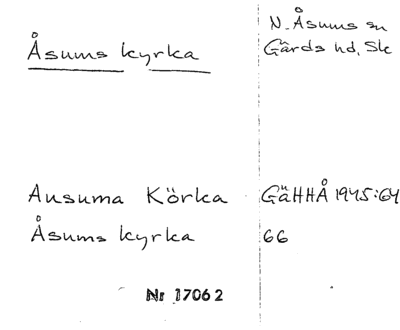 Åsums kyrka
N. Åsums sn
Gärds hd, Sk
Ausuma Körka GäHHÅ 1945:64
Åsums kyrka 66
Nr 17062